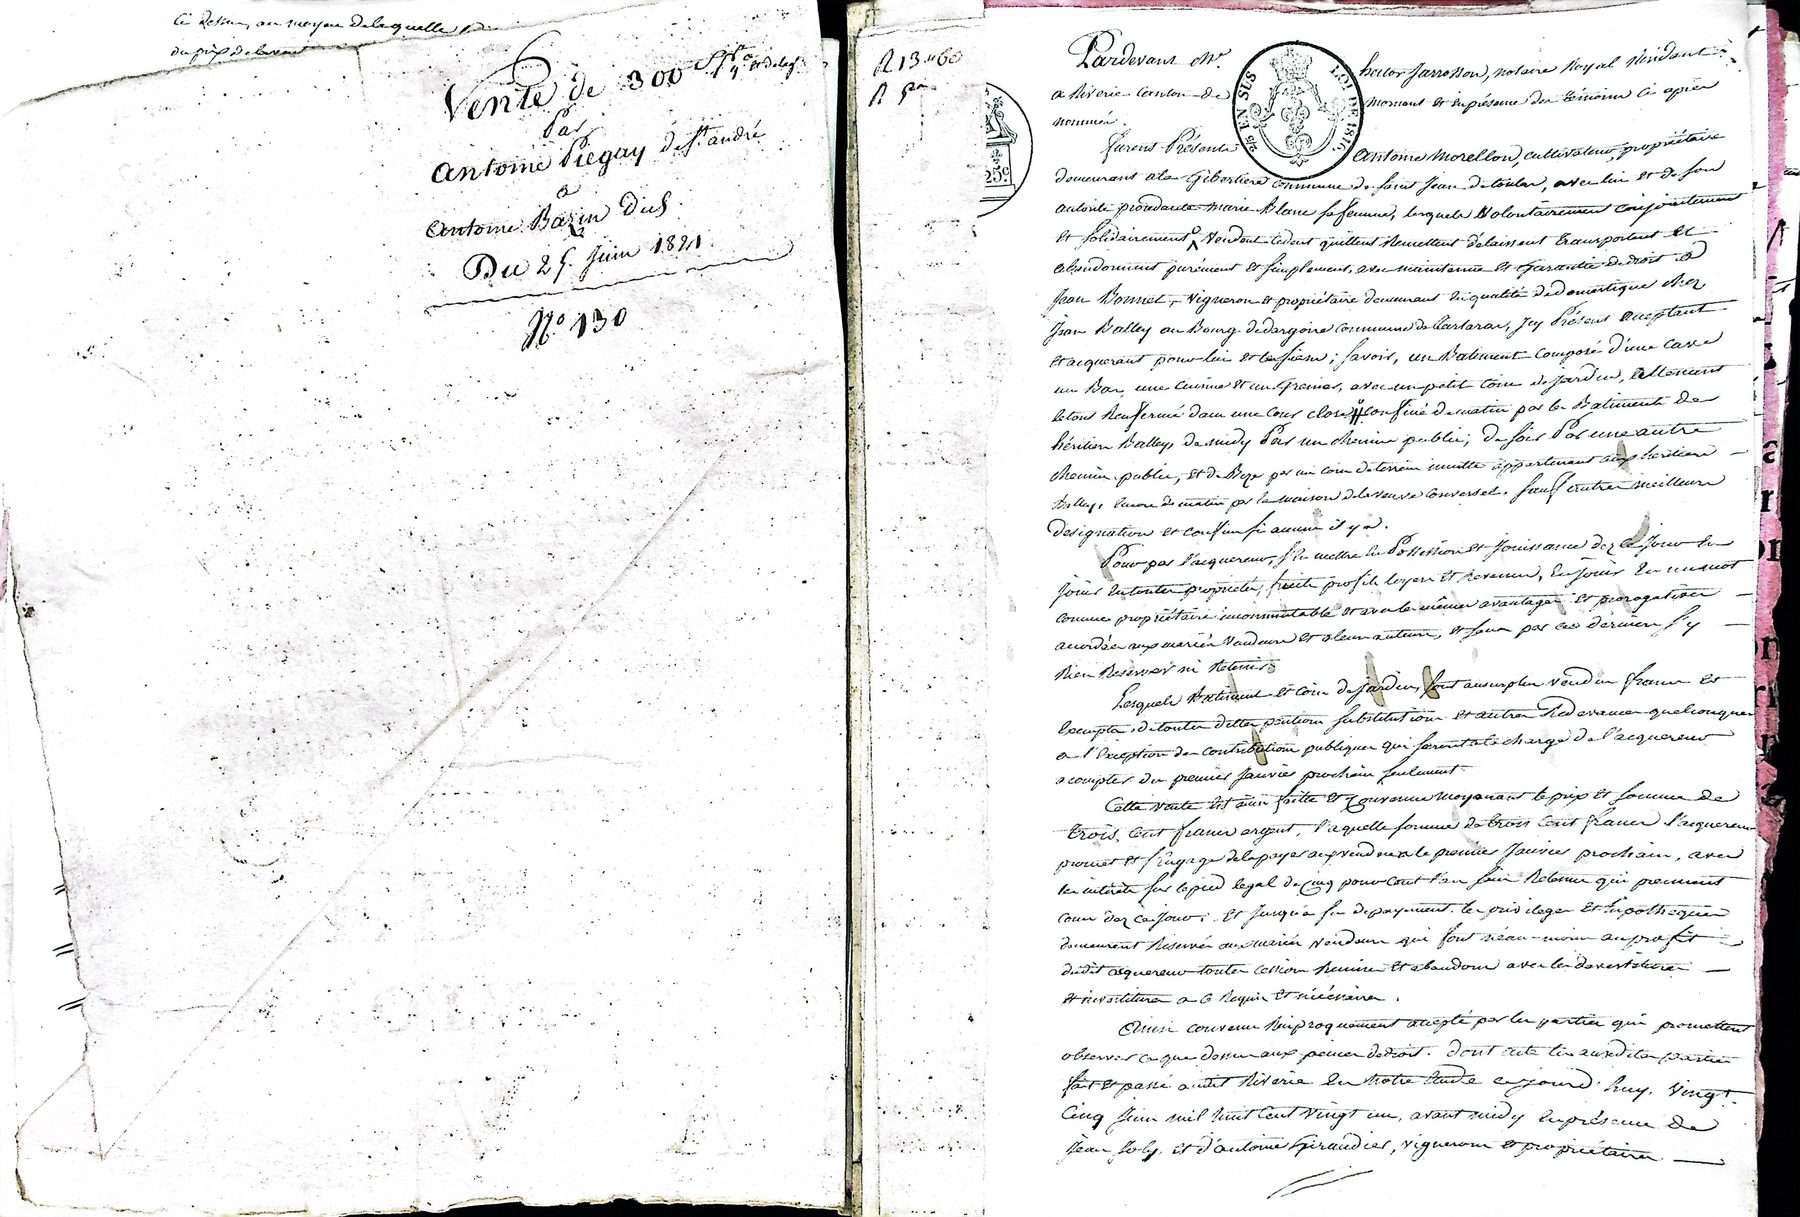 Ci dessus, au moyen de laquelle
du prix de la vente
Vente de 300 f
Par
Antoine Piegay de St. andré
a
Antoine Bazin du d.
Du 25. Juin 1821
No. 130
R 13 "60
25c.
25 EN SUS
LOI DE 1816.
Pardevant Me. hector Jarrosson, notaire Royal Résidant
a Riverie Canton de Mornant et en présence des témoins ci après
nommés.
Furent Présents Antoine Morellon, cultivateur, propriétaire
demeurant a la Gibertiere commune de Saint Jean de toulas, avec lui et de son
autorité procedante marie Blanc sa femme, lesquels volontairement conjointement
et solidairement Vendent cedent quittent Remettent délaissent transportent et
abandonnent purement et simplement, avec maintenue et Garantie de droit a
Jean Bonnet, Vigneron et propriétaire demeurant en qualité de domestique chez
Jean Balley au Bourg de dargoire commune de Tartaras, Icy Présent acceptant
et acquerant pour lui et les siens; Savoir, un Batiment composé d'une cave
un Bas, une cuisine et un Grenier, avec un petit coin de jardin, attenant
le tout Renfermé dans une cour close, confiné de matin par les Batiments des
héritiers Balley, de midy Par un chemin public, de soir Par une autre
chemin public, et de Bize par un coin de terrein inutile appartenant aux heritiers
Balley, encore de matin par la maison de la veuve Converset. Sauf autres meilleurs
designation et confins si aucuns il y a.
Pour par l'acquereur, s'en mettre en Possession et Jouissance dez ce Jour en
Jouir en toute propriété, fruits profits loyers et Revenus, en Jouir en un mot
comme propriétaire incommutable et avec les mêmes avantages et prerogatives
accordées aux mariés Vendeurs et a leurs auteurs, et sans par ces derniers s'y
Rien Reserver ni Retenir.
Lesquels Batiment et coin de jardin, sont au surplus vendus francs et
Exempts de toutes dettes pentions substitutions et autres Redevances quelconques
a l'Exception des Contributions publiques qui seront a la charge de l'acquereur
a compter du premier Janvier prochain seulement.
Cette vente est ainsi faitte et Convenue moyenant le prix et somme de
trois cent francs argent, l'aquelle somme de trois cent francs l'acquereur
promet et s'engage de la payer aux vendeurs le premier Janvier prochain, avec
les intérêts sur le pied legal de Cinq pour Cent l'an sans Retenue qui prennent
cours dez ce jour; et Jusqu'a fin de payement. les privileges et hypotheques
demeurent Reservés aux mariés Vendeurs qui font néan-moins au profit
dudit acquereur toutes cession Remise et abandon avec les devestitures
et investiture a ce Requis et nécessaires.
Ainsi convenu Reciproquement accepté par les parties qui promettent
observer ce que dessus aux peines de droit. dont acte lu auxdites parties
fait et passé audit Riverie En Notre Etude ce jourd'huy, Vingt
Cinq Juin mil huit Cent Vingt un, avant midy En présence de
Jean Joly, et d'antoine Giraudier, Vignerons et propriétaires